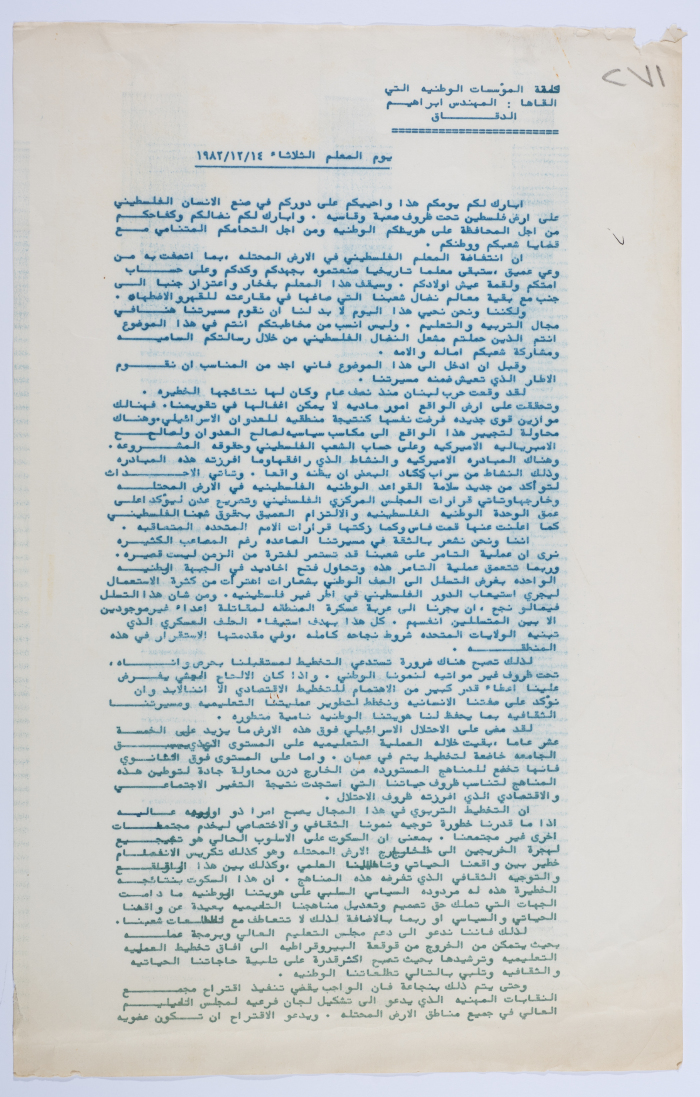 ٢٧١
كلمة المؤسسات الوطنيه التي
القاها : المهندس ابراهيم
الدقـــــــــاق
يوم المعلم الثلاثاء ١٩٨٢/١٢/١٤
ابارك لكم يومكم هذا واحييكم على دوركم في صنع الانسان الفلسطيني
على ارض فلسطين تحت ظروف صعبة وقاسيه . وابارك لكم نضالكم وكفاحكم
من اجل المحافظة على هويتكم الوطنيه ومن اجل التحامكم المتنامي مع
قضايا شعبكم ووطنكم .
ان انتفاضة المعلم الفلسطيني في الارض المحتله ،بما اتصفت به من
وعي عميق ،ستبقى معلما تاريخيا صنعتموه بجهدكم وكدكم وعلى حساب
امتكم ولقمة عيش اولادكم . وسيقف هذا المعلم بفخار واعتزاز جنبا الى
جنب مع بقية معالم نضال شعبنا التي صاغها في مقارعته للقهر والاضطهاد .
ولكننا ونحن نحيي هذا اليوم لا بد لنا ان نقوم مسيرتنا هنا في
مجال التربيه والتعليم . وليس انسب من مخاطبتكم انتم في هذا الموضوع
انتم الذين حملتم مشعل النضال الفلسطيني من خلال رسالتكم الساميه
ومشاركة شعبكم اماله والامه .
وقبل ان ادخل الى هذا الموضوع فاني اجد من المناسب ان نقوم
الاطار الذي تعيش ضمنه مسيرتنا .
لقد وقعت حرب لبنان منذ نصف عام وكان لها نتائجها الخطيره .
وتحققت على ارض الواقع امور ماديه لا يمكن اغفالها في تقويمنا. فهنالك
موازين قوى جديده فرضت نفسها كنتيجة منطقيه للعدوان الاسرائيلي،وهناك
محاولة لتجيير هذا الواقع الى مكاسب سياسيه لصالح العدوان ولصالح
الامبرياليه الاميركيه وعلى حساب الشعب الفلسطيني وحقوقه المشروعه.
وهناك المبادره الاميركيه والنشاط الذي رافقها وما افرزته هذه المبادره
وذلك النشاط من سراب كاد البعض ان يظنه واقعا . وتاتي الاحداث
لتؤكد من جديد سلامة القواعد الوطنيه الفلسطينيه في الارض المحتله
وخارجها وتاتي قرارات المجلس المركزي الفلسطيني وتصريح عدن ليؤكد اعلى
عمق الوحدة الوطنيه الفلسطينيه والالتزام العميق بحقوق شعبنا الفلسطيني
كما اعلنت عنها قمت فاس وكما زكتها قرارات الامم المتحده المتعاقبه .
اننا ونحن نشعر بالثقة في مسيرتنا الصاعده رغم المصاعب الكثيره
نرى ان عملية التامر على شعبنا قد تستمر لفترة من الزمن ليست قصيره .
وربما تتعمق عملية التامر هذه وتحاول فتح اخاديد في الجبهة الوطنيه
الواحده بغرض التسلل الى الصف الوطني بشعارات اهترأت من كثرة الاستعمال
ليجري استيعاب الدور الفلسطيني في اطر غير فلسطينيه . ومن شان هذا التسلل
فيما لو نجح ،ان يجرنا الى عربة عسكرة المنطقه لمقاتلة اعداء غير موجودين
الا بين المتسللين انفسهم . كل هذا بهدف استيفاء الحلف العسكري الذي
تبنيه الولايات المتحده شروط نجاحه كامله ،وفي مقدمتها الاستقرار في هذه
المنطقـــــه .
لذلك تصبح هناك ضرورة تستدعي التخطيط لمستقبلنا بحرص واناه ،
تحت ظروف غير مواتيه لنمونا الوطني . واذا كان الالحاح البيئي يفرض
علينا اعطاء قدر كبير من الاهتمام للتخطيط الاقتصادي الا اننا لا بد وان
نؤكد على صفتنا الانسانيه ونخطط لتطوير عمليتنا التعليميه ومسيرتنا
الثقافيه بما يحفظ لنا هويتنا الوطنيه نامية متطوره .
لقد مضى على الاحتلال الاسرائيلي فوق هذه الارض ما يزيد على الخمسة
عشر عاما ،بقيت خلاله العملية التعليميه على المستوى الذي يسبق
الجامعه خاضعة لتخطيط يتم في عمان . واما على المستوى فوق الثانوي
فانها تخضع للمناهج المستورده من الخارج دون محاولة جادة لتوطين هذه
المناهج لتناسب ظروف حياتنا التي استجدت نتيجة التغير الاجتماعي
والاقتصادي الذي افرزته ظروف الاحتلال .
ان التخطيط التربوي في هذا المجال يصبح امرا ذو اولويه عاليه
اذا ما قدرنا خطورة توجيه نمونا الثقافي والاختصاصي ليخدم مجتمعات
اخرى غير مجتمعنا . بمعنى ان السكوت على الاسلوب الحالي هو تشجيع
لهجرة الخريجين الى خارج الارض المحتله وهو كذلك تكريس الانفصام
خطير بين واقعنا الحياتي وتاهيلنا العلمي ،وكذلك بين هذا الواقع
والتوجيه الثقافي الذي تفرضه هذه المناهج . ان هذا السكوت بنتائجه
الخطيرة هذه له مردوده السياسي السلبي على هويتنا الوطنيه ما دامت
الجهات التي تملك حق تصميم وتعديل مناهجنا التعليميه بعيدة عن واقعنا
الحياتي والسياسي او ربما بالاضافة لذلك لا تتعاطف مع تطلعات شعبنا.
لذلك فاننا ندعو الى دعم مجلس التعليم العالي وبرمجة عمله
بحيث يتمكن من الخروج من قوقعة البيروقراطيه الى افاق تخطيط العمليه
التعليميه وترشيدها بحيث تصبح اكثر قدرة على تلبية حاجاتنا الحياتيه
والثقافيه وتلبي بالتالي تطلعاتنا الوطنيه .
وحتى يتم ذلك بنجاعة فان الواجب يقضي تنفيذ اقتراح مجمع
النقابات المهنيه الذي يدعو الى تشكيل لجان فرعيه لمجلس التعليم
العالي في جميع مناطق الارض المحتله . ويدعو الاقتراح ان تكون عضويه